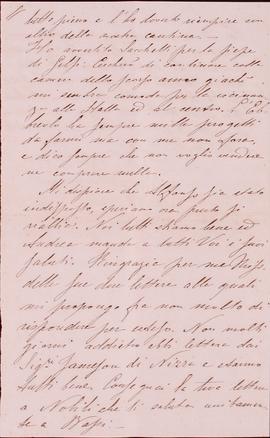 tutto pieno e l'ha dovuto riempire con
altro della nostra cantina. -
Ho avvertito Sacchetti per la siepe
di
camere dello scorso anno giacché
mi sembra comodo per la vicinan-
za alle Stalle ed al centro.
ha sempre mille progetti
da farmi ma con me non
e dico sempre che non voglio vendere
né comprare nulla.
Mi dispiace che Alfonso sia stato
indisposto, speriamo ora presto si
Noi tutti stiamo bene ed
Andrea manda a tutti Voi i suoi
saluti. Ringrazia per me Miss.
delle sue due lettere alle quali
mi propongo fra non molto di
rispondere per esteso. Non molti
giorni addietro ebbi lettere dai
Sigri Jameson di Nizza e stanno
tutti bene. Consegnai la tua lettera
a Nobili che ti saluta unitamen-
te a